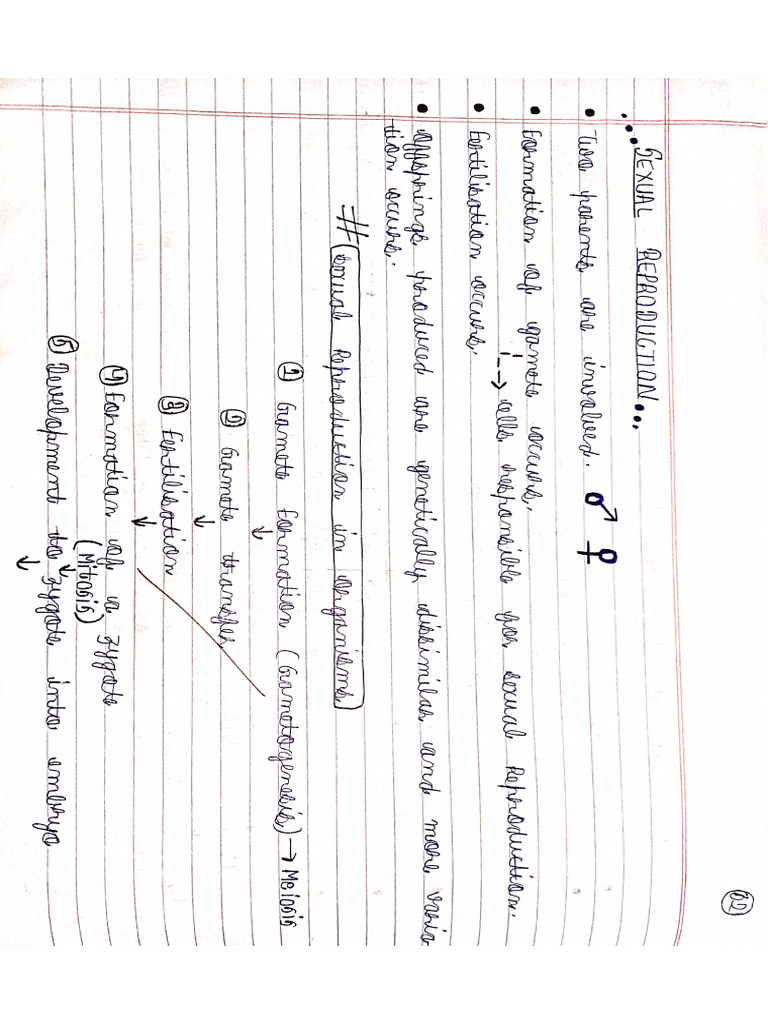 62
...SEXUAL REPRODUCTION...
• Two parents are involved. ♂ ♀
• Formation of gamete occurs.
↳ cells responsible for sexual Reproduction.
• Fertilisation occurs.
• Offsprings produced are genetically dissimilar and more varia-
tion occurs.
# Sexual Reproduction in organisms
① Gamete Formation (Gametogenesis) → Meiosis
↓
② Gamete transfer
↓
③ Fertilisation
↓
④ Formation of a zygote
(Mitosis)
↓
⑤ Development to zygote into embryo
↓